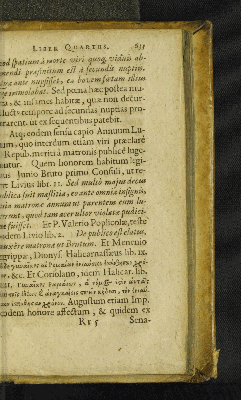 LIBER QUARTUS. 633
spatium à morte viri quog, vidua ab-
præfinitum est à secundis nuptiis.
ante nupsisset, ea bovem fœtam illius
immolabat. Sed pœna hæc postea mu-
& infames habitæ, quæ non decur-
tempore ad secundas nuptias pro-
ut ex sequentibus patebit.
Atq; eodem sensu capio Annum Lu-
quo interdum etiam viri præclarè
Repub. meriti à matronis publicè luge-
Quem honorem habitum legi-
Junio Bruto primo Consuli, ut re-
Livius lib. 11. Sed multò majus decus
publica fuit mæstitia, eo ante omnia insignis,
matronæ annum ut parentem eum lu-
quod tam acer ultor violatæ pudici-
fuisset. Et P. Valerio Poplicolæ, teste
eodem Livio lib. 2. De publico est elatus,
matronæ ut Brutum. Et Menenio
Agrippæ, Dionys. Halicarnasseus lib. ix.
&c. Et Coriolano, idem Halicar. lib.
Augustum etiam Imp.
eodem honore affectum, & quidem ex
Rr 5 Sena-